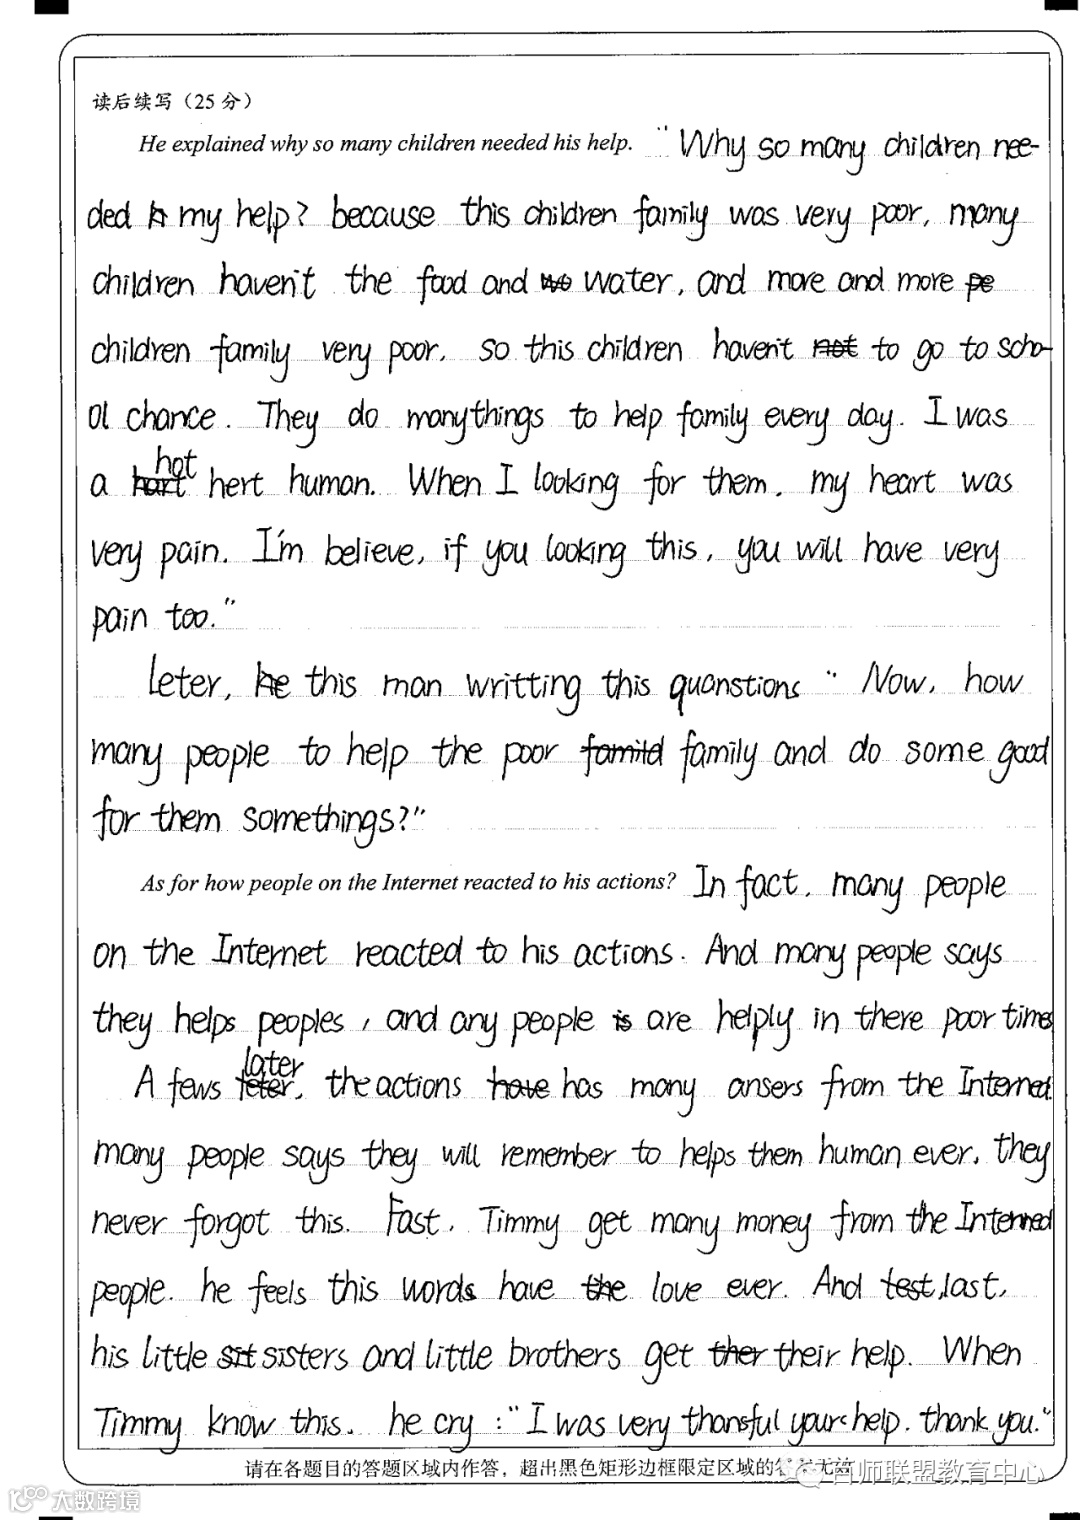 读后续写（25 分）
He explained why so many children needed his help. "Why so many children nee-
ded my help? because this children family was very poor, many
children haven't the food and water, and more and more
children family very poor. so this children haven't to go to scho-
ol chance. They do manythings to help family every day. I was
a hot hert human. When I looking for them, my heart was
very pain. I'm believe, if you looking this, you will have very
pain too."
leter, this man writting this quanstions " Now, how
many people to help the poor family and do some good
for them somethings?"
As for how people on the Internet reacted to his actions? In fact, many people
on the Internet reacted to his actions. And many people says
they helps peoples, and any people are helply in there poor times
A fews later, the actions has many ansers from the Interned.
many people says they will remember to helps them human ever, they
never forgot this. Fast, Timmy get many money from the Interned
people. he feels this words have love ever. And last,
his little sisters and little brothers get their help. When
Timmy know this. he cry : " I was very thansful yours help. thank you."
请在各题目的答题区域内作答，超出黑色矩形边框限定区域的答案无效
名师联盟教育中心
大数跨境